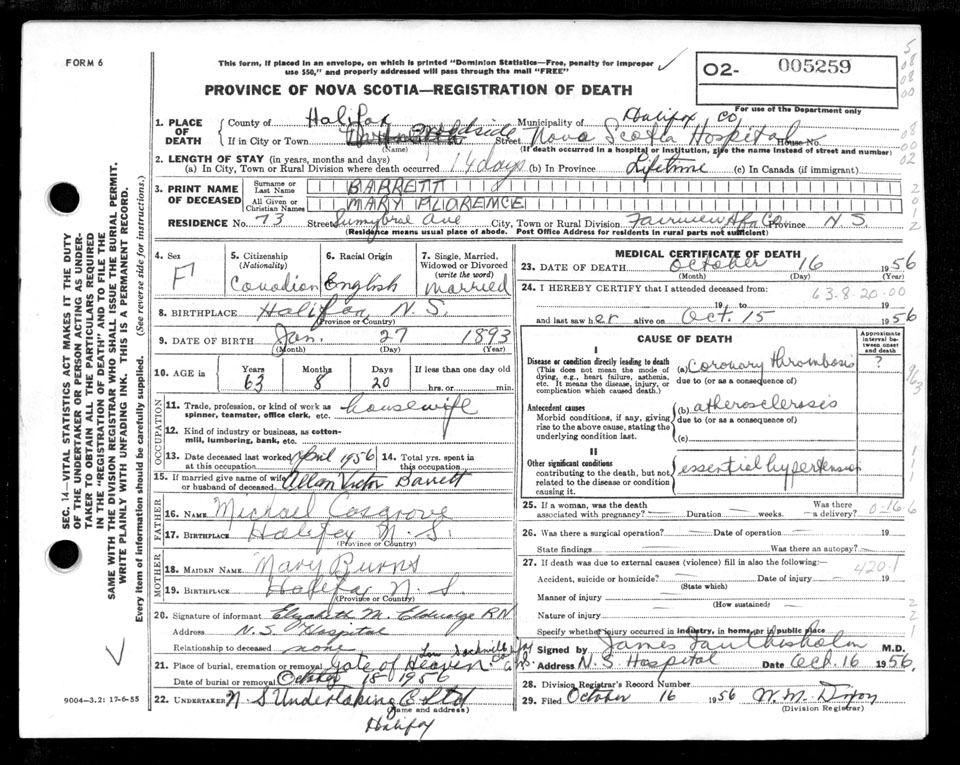 FORM 6
This form, if placed in an envelope, on which is printed "Dominion Statistics—Free, penalty for improper
use $50," and properly addressed will pass through the mail "FREE"
02- 005259
For use of the Department only
PROVINCE OF NOVA SCOTIA—REGISTRATION OF DEATH
1. PLACE OF DEATH
County of Halifax Municipality of Halifax Co
If in City or Town Woodside Street Nova Scotia Hospital House No.
(Name) (If death occurred in a hospital or institution, give the name instead of street and number)
2. LENGTH OF STAY (in years, months and days)
(a) In City, Town or Rural Division where death occurred 14 days (b) In Province Lifetime (c) In Canada (if immigrant)
3. PRINT NAME OF DECEASED
Surname or Last Name BARRETT
All Given or Christian Names MARY FLORENCE
RESIDENCE No. 73 Street Sunnybrae Ave City, Town or Rural Division Fairview Hfx Co Province N.S.
(Residence means usual place of abode. Post Office Address for residents in rural parts not sufficient)
4. Sex F
5. Citizenship (Nationality) Canadian
6. Racial Origin English
7. Single, Married, Widowed or Divorced (write the word) Married
8. BIRTHPLACE Halifax, N.S.
(Province or Country)
9. DATE OF BIRTH Jan. 27 1893
(Month) (Day) (Year)
10. AGE in Years 63 Months 8 Days 20 If less than one day old
hrs. or min.
OCCUPATION
11. Trade, profession, or kind of work as spinner, teamster, office clerk, etc. housewife
12. Kind of industry or business, as cotton-mill, lumbering, bank, etc.
13. Date deceased last worked at this occupation April 1956 14. Total yrs. spent in this occupation
15. If married give name of wife or husband of deceased Allan Victor Barrett
FATHER
16. NAME Michael Cosgrove
17. BIRTHPLACE Halifax N.S.
(Province or Country)
MOTHER
18. MAIDEN NAME Mary Burns
19. BIRTHPLACE Halifax N.S.
(Province or Country)
20. Signature of informant Elizabeth M. Eldridge RN
Address N.S. Hospital
Relationship to deceased none
21. Place of burial, cremation or removal Gate of Heaven
Date of burial or removal October 18 1956
22. UNDERTAKER N.S Undertaking Co Ltd
(Name and address)
Halifax
9004—3.2: 17-6-55
MEDICAL CERTIFICATE OF DEATH
23. DATE OF DEATH October 16 1956
(Month) (Day) (Year)
24. I HEREBY CERTIFY that I attended deceased from:
63-8-20-00
19 to 19
and last saw her alive on Oct. 15 1956
CAUSE OF DEATH
Approximate interval between onset and death
I
Disease or condition directly leading to death
(This does not mean the mode of dying, e.g., heart failure, asthenia, etc. It means the disease, injury, or complication which caused death.)
(a) Coronary thrombosis ?
due to (or as a consequence of)
Antecedent causes
Morbid conditions, if any, giving rise to the above cause, stating the underlying condition last.
(b) atherosclerosis
due to (or as a consequence of)
(c)
II
Other significant conditions
contributing to the death, but not related to the disease or condition causing it.
essential hypertension
25. If a woman, was the death associated with pregnancy? Duration weeks. Was there a delivery?
26. Was there a surgical operation? Date of operation 19
State findings Was there an autopsy?
27. If death was due to external causes (violence) fill in also the following:
420-1
Accident, suicide or homicide? Date of injury 19
(State which)
Manner of injury
(How sustained)
Nature of injury
Specify whether injury occurred in industry, in home, or in public place
Signed by James M.D.
Address N.S. Hospital Date Oct. 16 1956.
28. Division Registrar's Record Number
29. Filed October 16 1956 W. M. Dixon
(Division Registrar)
SEC. 14—VITAL STATISTICS ACT MAKES IT THE DUTY
OF THE UNDERTAKER OR PERSON ACTING AS UNDER-
TAKER TO OBTAIN ALL THE PARTICULARS REQUIRED
IN THE "REGISTRATION OF DEATH" AND TO FILE THE
SAME WITH THE DIVISION REGISTRAR WHO SHALL ISSUE THE BURIAL PERMIT.
WRITE PLAINLY WITH UNFADING INK. THIS IS A PERMANENT RECORD.
Every item of information should be carefully supplied. (See reverse side for instructions.)